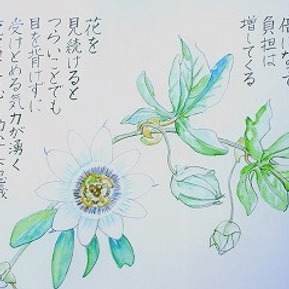 負担は
増してくる
花を
見続けると
つらいことでも
目を背けずに
受けとめる気力が湧く